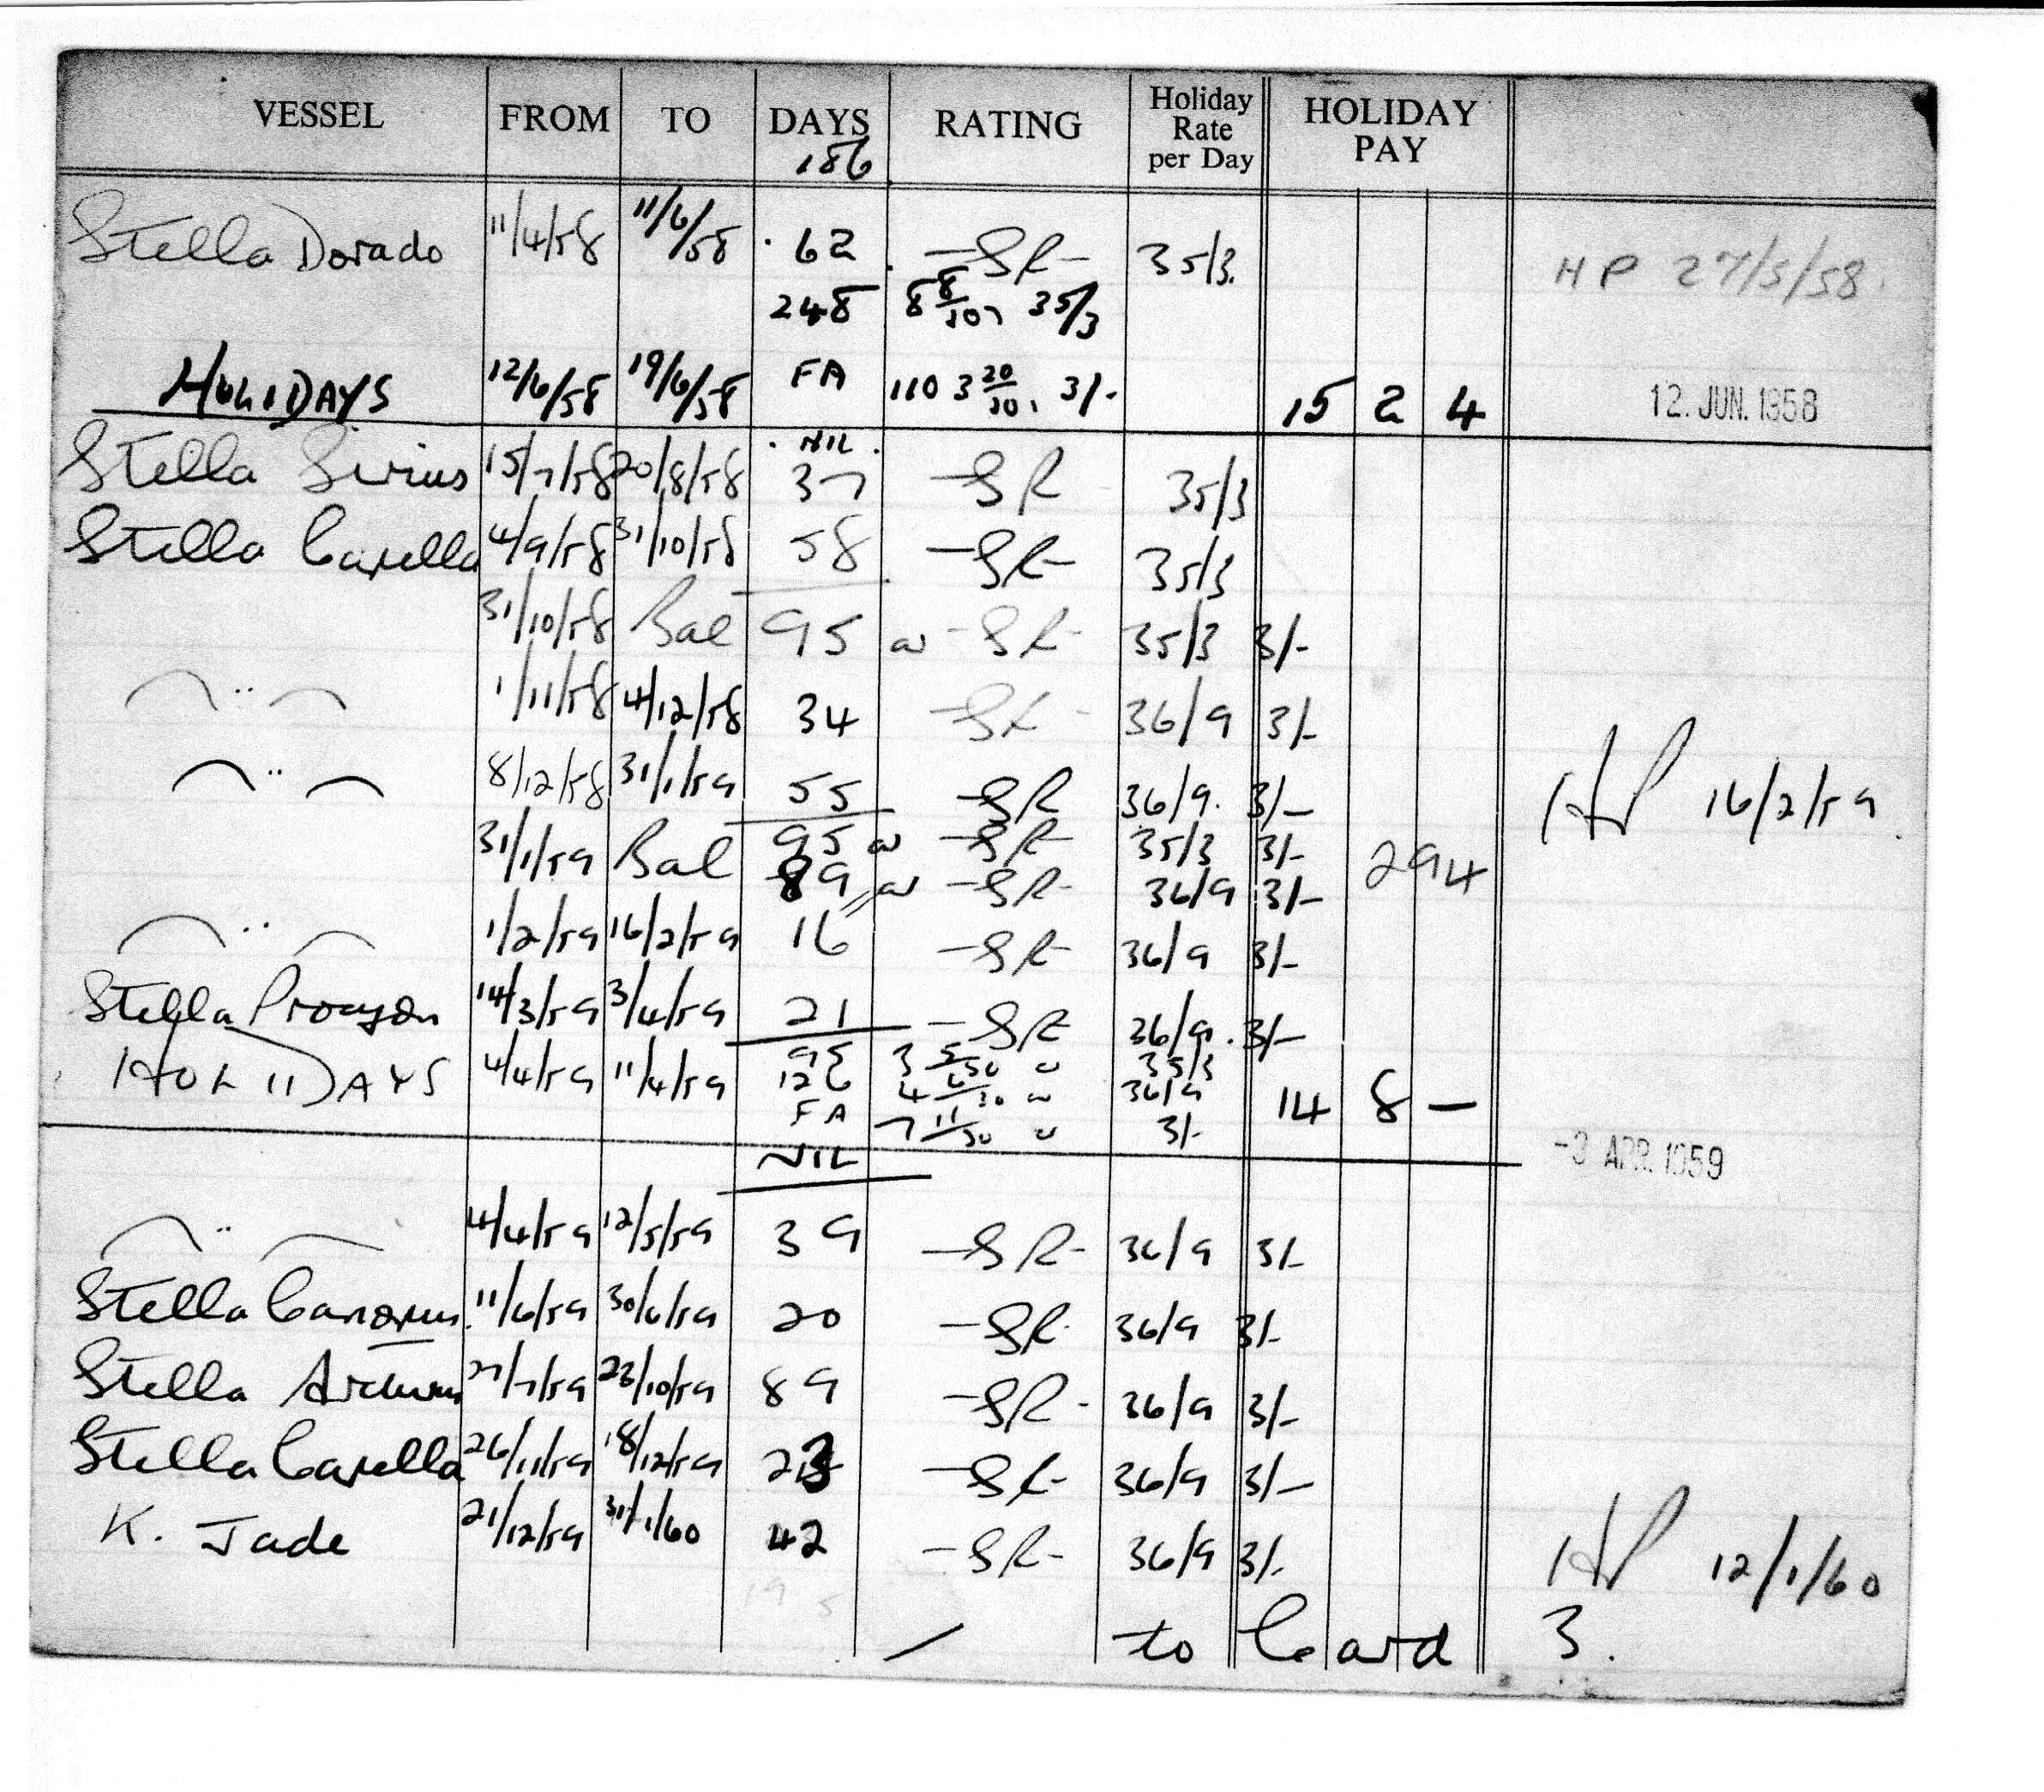 VESSEL FROM TO DAYS RATING Holiday Rate per Day HOLIDAY PAY
186
Stella Dorado 11/4/58 11/6/58 62 -SR- 35/3. HP 27/5/58.
248 8 8/30, 35/3
HOLIDAYS 12/6/58 19/6/58 FA 110 3 20/30, 3/- 15 2 4 12. JUN. 1958
NIL
Stella Sirius 15/7/58 20/8/58 37 -SR 35/3
Stella Carella 4/9/58 31/10/58 58 -SR- 35/3
31/10/58 Bal 95 @ -SR- 35/3 3/-
" 1/11/58 4/12/58 34 -SR- 36/9 3/-
" 8/12/58 31/1/59 55 -SR 36/9. 3/- HP 16/2/59.
31/1/59 Bal 95 @ -SR- 35/3 3/-
89 @ -SR- 36/9 3/- 294
" 1/2/59 16/2/59 16 -SR- 36/9 3/-
Stella Procyon 14/3/59 3/4/59 21 -SR 36/9. 3/-
HOLIDAYS 4/4/59 11/4/59 95 3 5/30 @ 35/3
126 4 6/30 @ 36/9 14 8 -
FA 7 11/30 @ 3/-
NIL -3 APR. 1959
" 4/4/59 12/5/59 39 -SR- 36/9 3/-
Stella Canopus. 11/6/59 30/6/59 20 -SR- 36/9 3/-
Stella Arcturus 27/7/59 23/10/59 89 -SR- 36/9 3/-
Stella Carella 26/11/59 18/12/59 23 -SR- 36/9 3/-
K. Jade 21/12/59 31/1/60 42 -SR- 36/9 3/- HP 12/1/60
19 5
/ to Card 3.